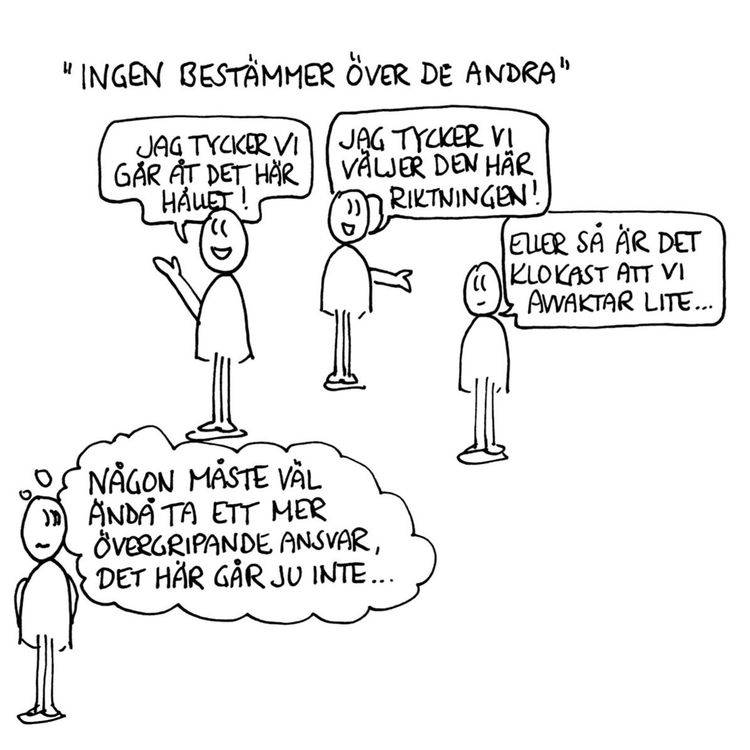 "INGEN BESTÄMMER ÖVER DE ANDRA"
JAG TYCKER VI
GÅR ÅT DET HÄR
HÅLLET!
JAG TYCKER VI
VÄLJER DEN HÄR
RIKTNINGEN!
ELLER SÅ ÄR DET
KLOKAST ATT VI
AVVAKTAR LITE...
NÅGON MÅSTE VÄL
ÄNDÅ TA ETT MER
ÖVERGRIPANDE ANSVAR,
DET HÄR GÅR JU INTE...